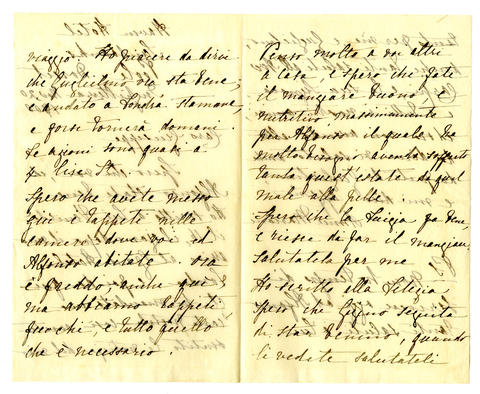 viaggio. Ho piacere da dirvi
che Guglielmo ora sta bene;
è andato a Londra stamane,
e forse tornerà domani.
Le azioni sono quasi a
Spero che avete messo
giù i tappeti nelle
camere dove voi ed
Alfonso abitate: ora
è freddo, anche qui
ma abbiamo tappeti
fuochi, e tutto quello
che è necessario.
Penso molto a voi altri
a casa, e spero che fate
il mangiare buono, e
nutritivo massimamente
per Alfonso il quale ha
molto bisogno avendo sofferto
tanto quest'estate da quel
male alla pelle.
Spero che la Luigia fa bene,
e riesce da far il mangiare,
salutatela per me
Ho scritto alla Letizia
spero che Gigino seguita
di star benino, quando
li vedete salutateli